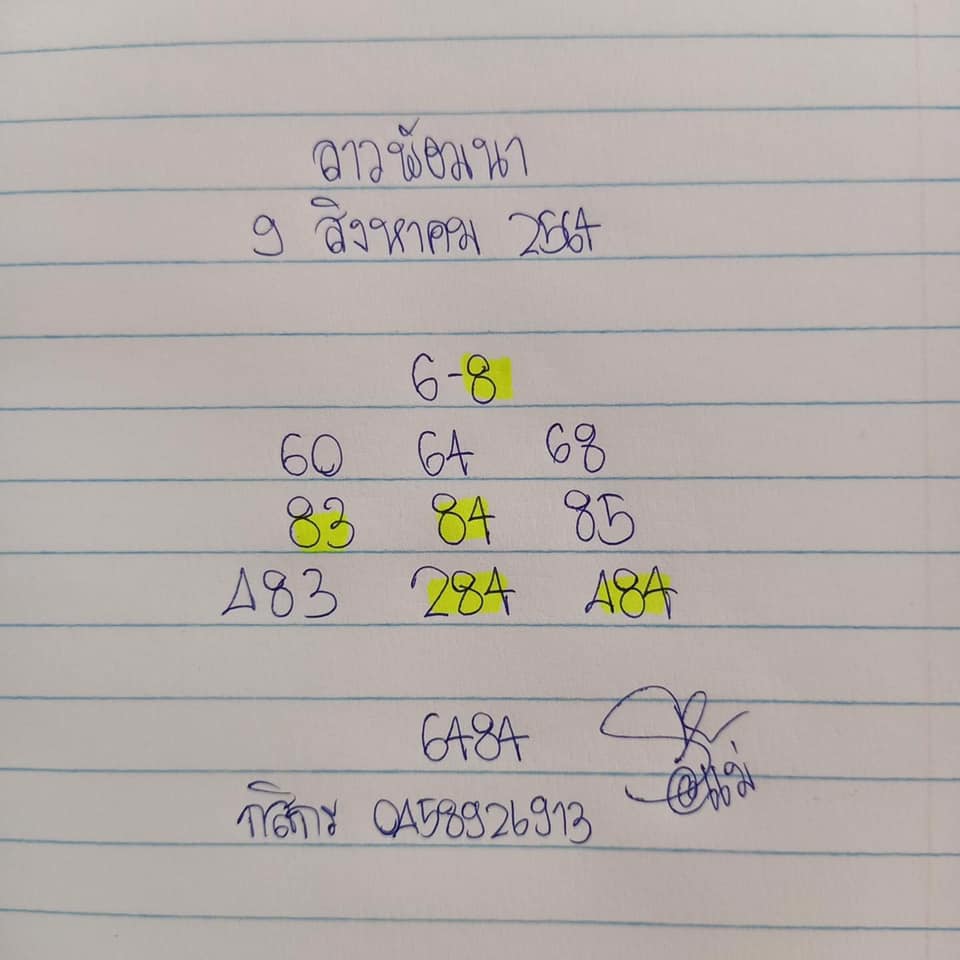 ลาวพัฒนา
9 สิงหาคม 2564
6-8
60 64 68
83 84 85
483 284 484
6484
กสิกร 0458926913
@แม่